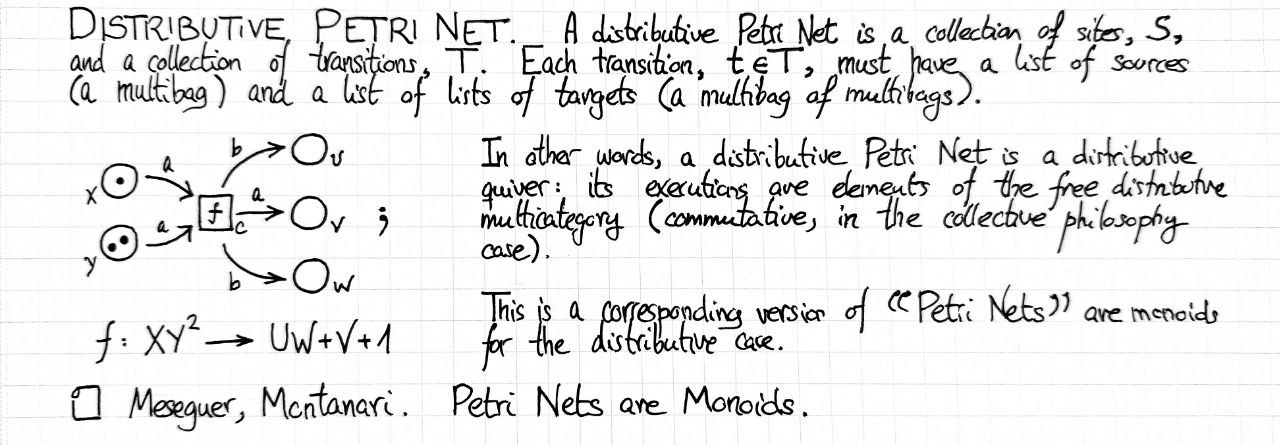 DISTRIBUTIVE PETRI NET. A distributive Petri Net is a collection of sites, S,
and a collection of transitions, T. Each transition, t∈T, must have a list of sources
(a multibag) and a list of lists of targets (a multibag of multibags).
b
U
a
X
f
a
c
V
;
a
Y
b
W
In other words, a distributive Petri Net is a distributive
quiver: its executions are elements of the free distributive
multicategory (commutative, in the collective philosophy
case).
This is a corresponding version of “Petri Nets” are monoids
for the distributive case.
f: XY² → UW+V+1
□ Meseguer, Montanari. Petri Nets are Monoids.